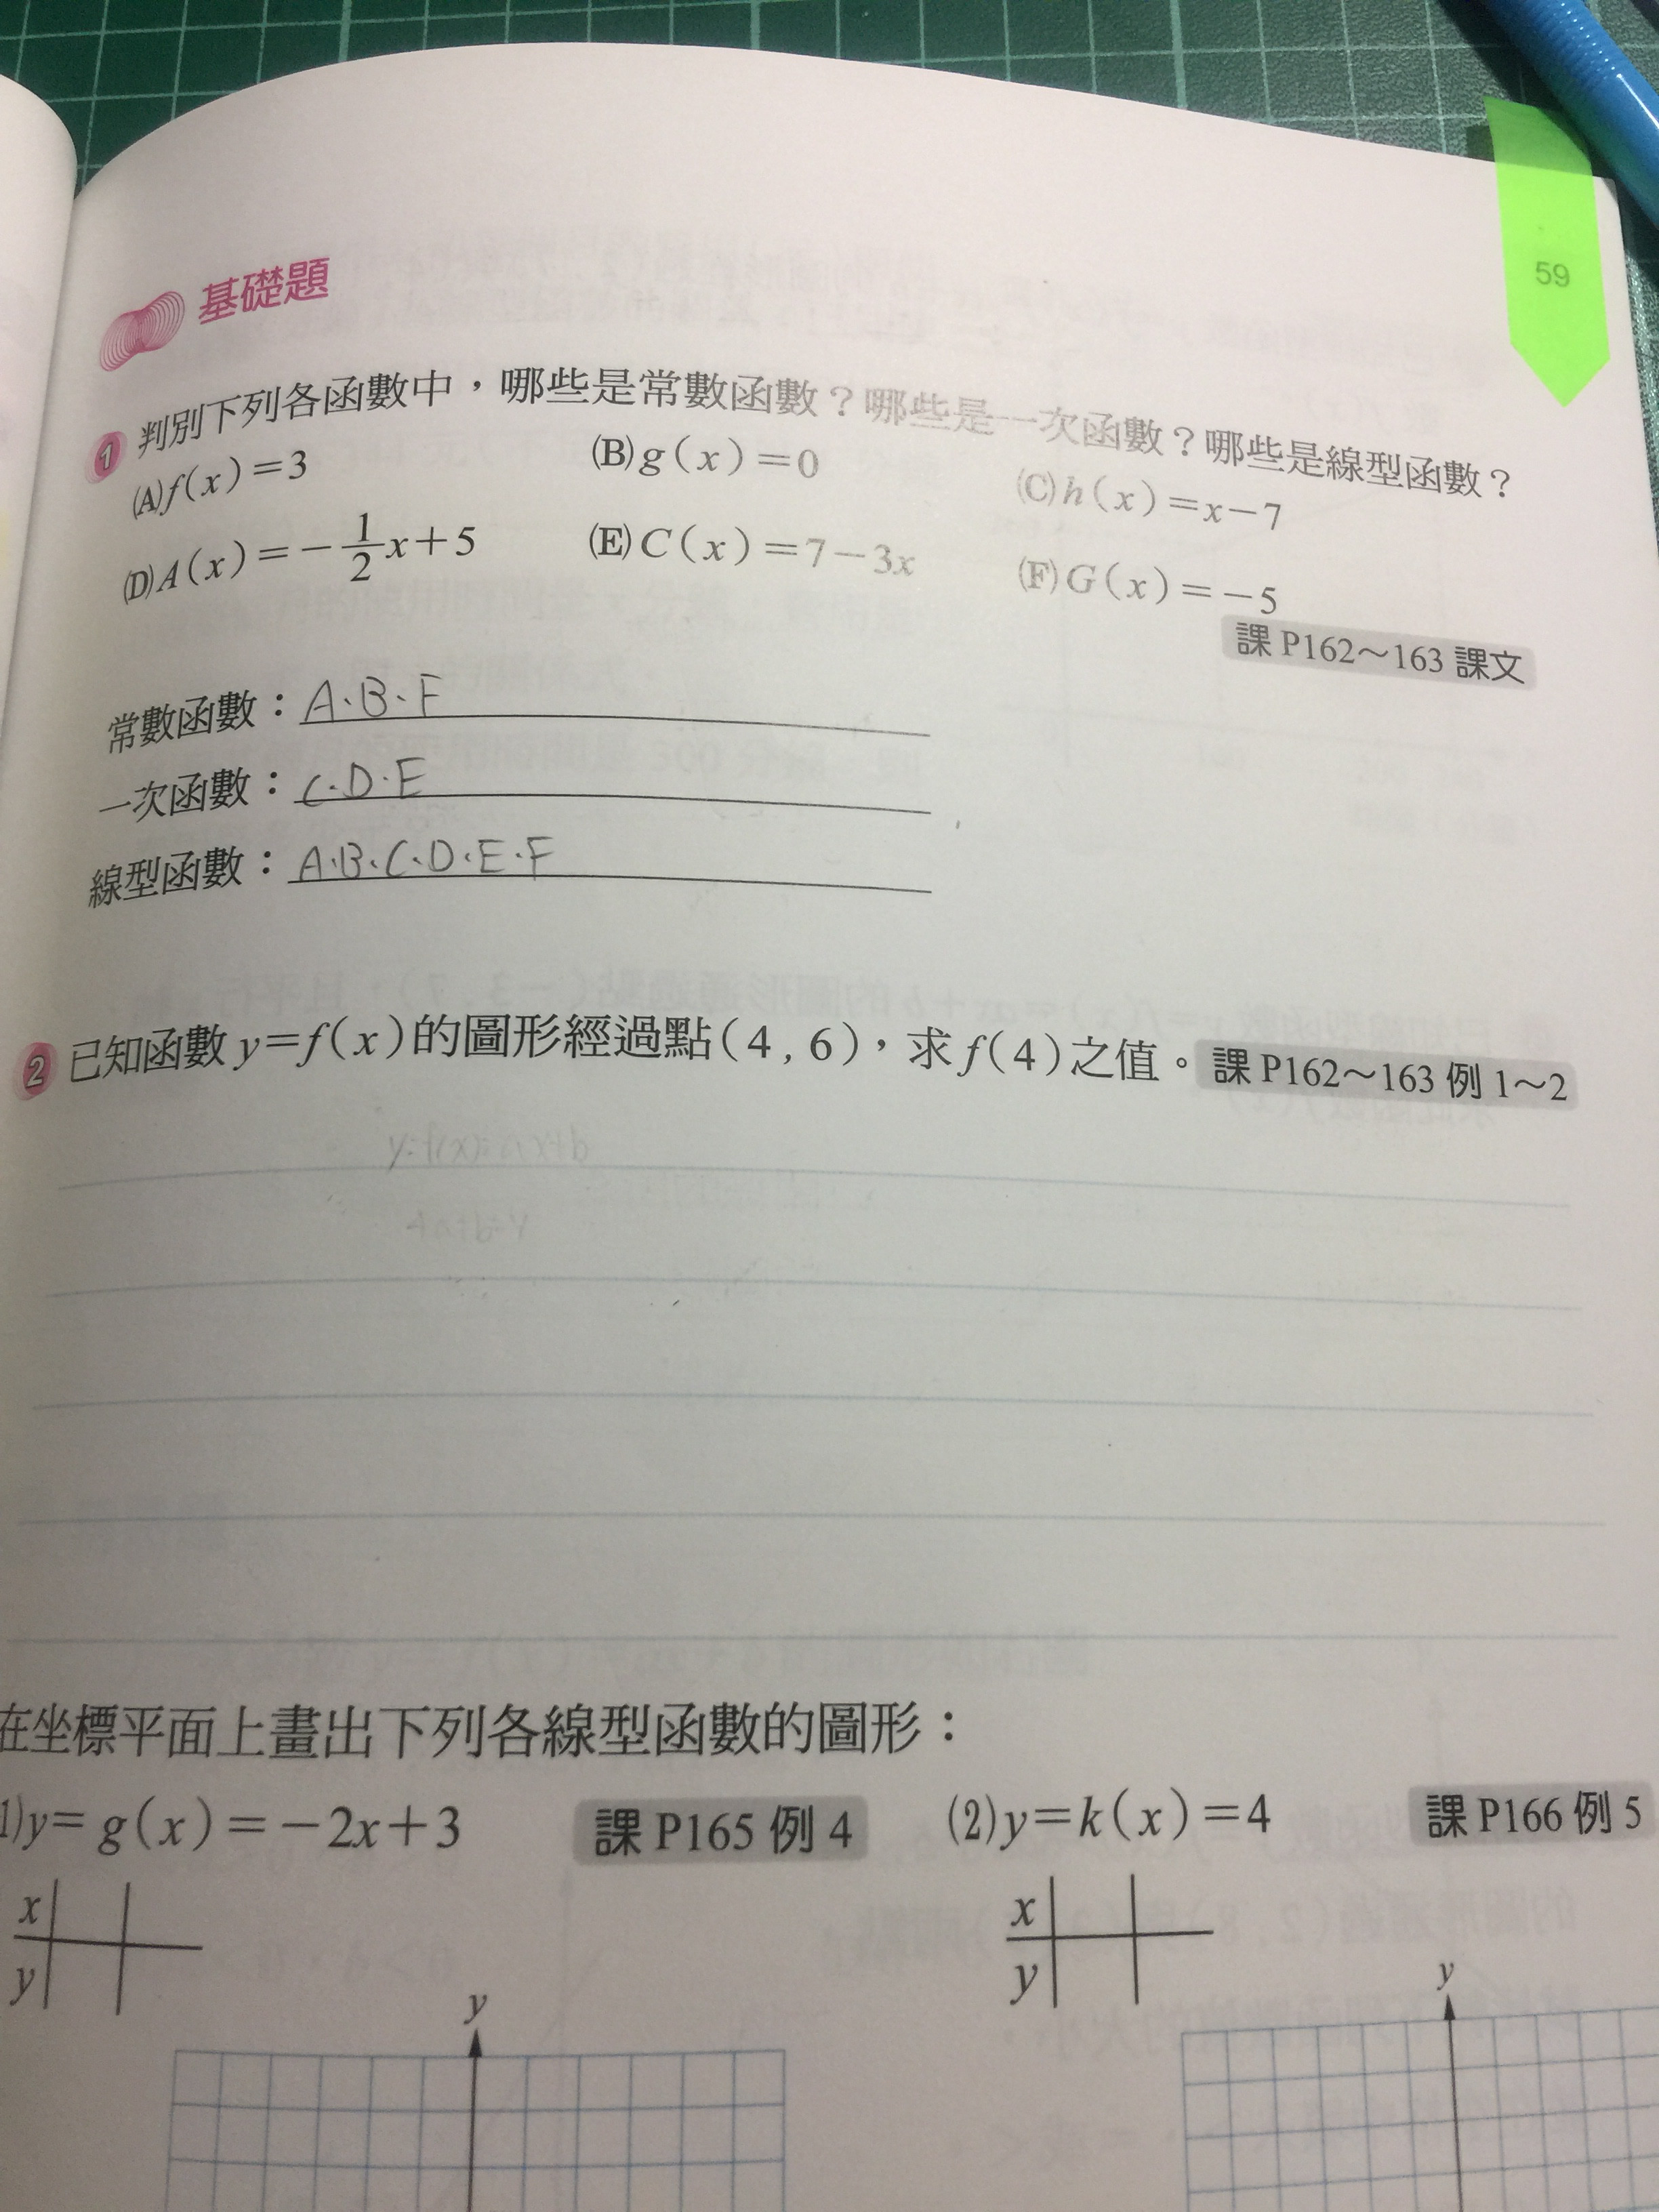 59
基礎題
1 判別下列各函數中，哪些是常數函數？哪些是一次函數？哪些是線型函數？
(A)f(x)=3 (B)g(x)=0 (C)h(x)=x-7
(D)A(x)=-1/2x+5 (E)C(x)=7-3x (F)G(x)=-5
課 P162～163 課文
常數函數：A、B、F
一次函數：C、D、E
線型函數：A、B、C、D、E、F
2 已知函數y=f(x)的圖形經過點(4,6)，求f(4)之值。課 P162～163 例 1～2
在坐標平面上畫出下列各線型函數的圖形：
1)y=g(x)=-2x+3 課 P165 例 4 (2)y=k(x)=4 課 P166 例 5
x x
y y
y y